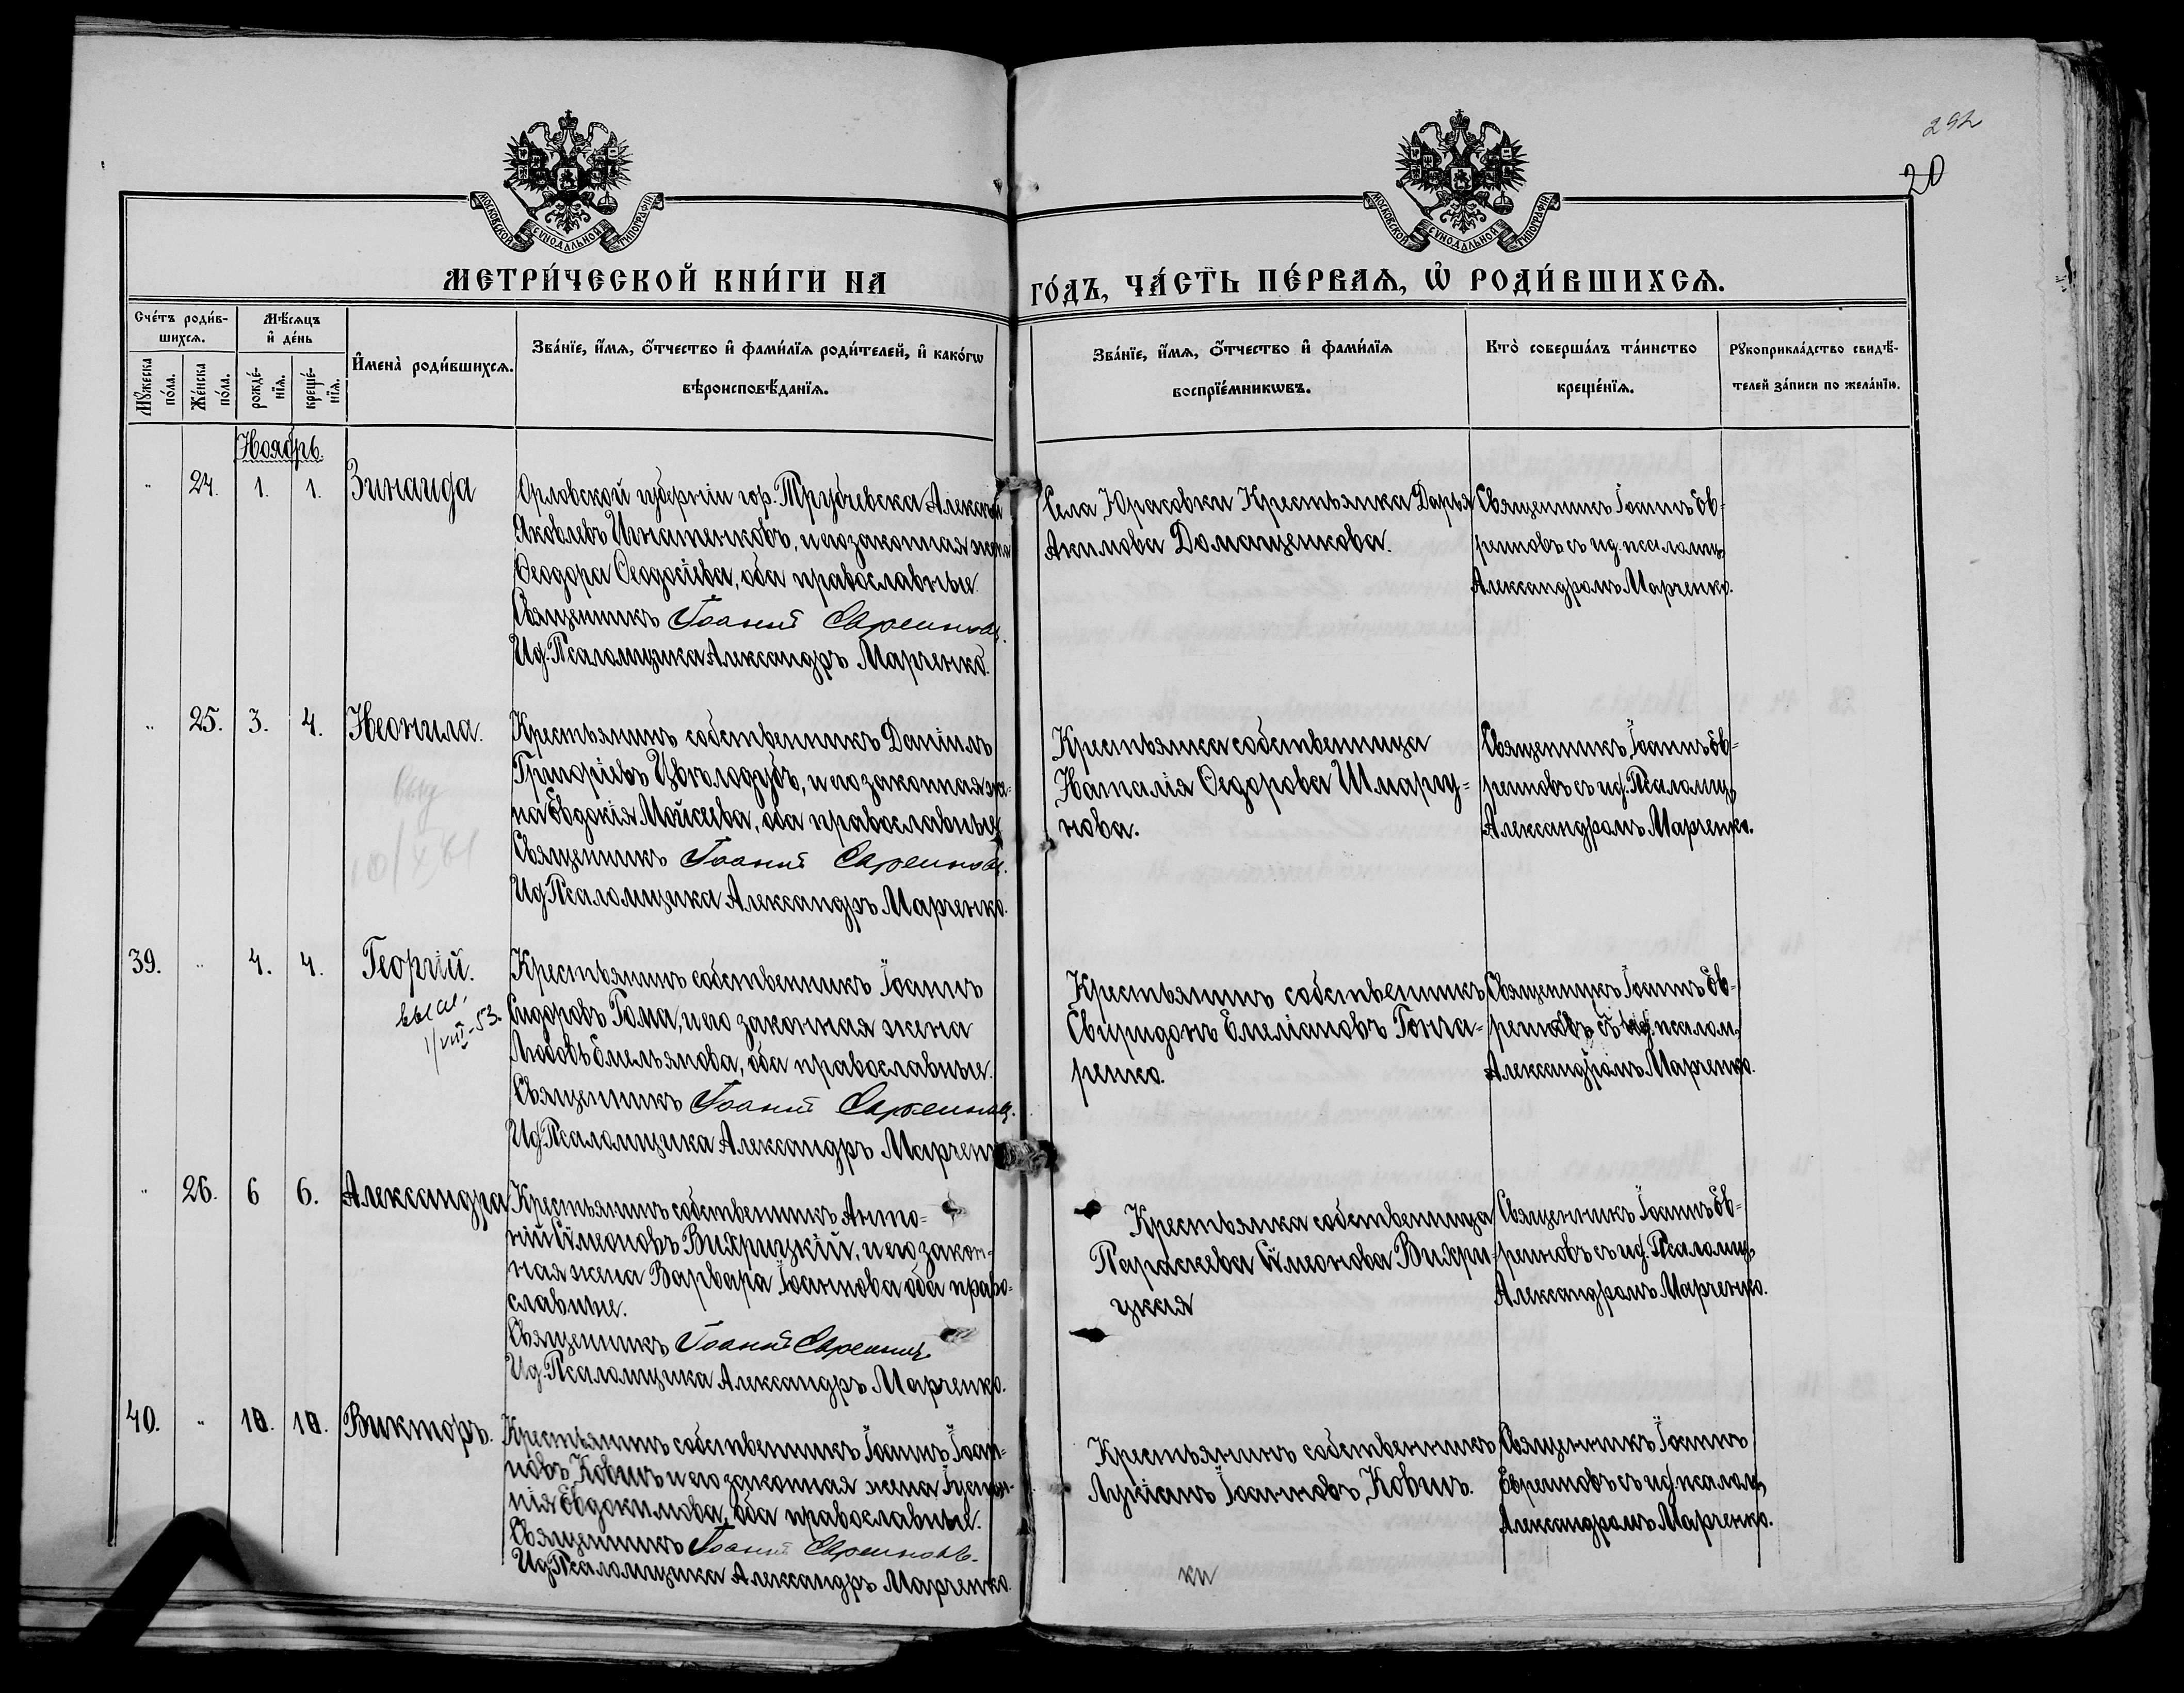 292
20
МОСКОВСКОЙ СѴНОДАЛЬНОЙ ТИПОГРАФІИ
МОСКОВСКОЙ СѴНОДАЛЬНОЙ ТИПОГРАФІИ
МЕТРИ́ЧЕСКОЙ КНИ́ГИ НА
ГО́ДЪ, ЧА́СТЬ ПЕ́РВАѦ, Ѡ҆ РОДИ́ВШИХСѦ.
Сче́тъ роди́в-
шихсѧ.
Мꙋ́жеска по́ла.
Же́нска по́ла.
Мѣ́сѧцъ
и҆ де́нь
рожде́-
нїѧ.
креще́-
нїѧ.
И҆мена̀ роди́вшихсѧ.
Зва́нїе, и҆́мѧ, ѻ҆́тчество и҆ фами́лїѧ роди́телей, и҆ како́гѡ
вѣроисповѣ́данїѧ.
Зва́нїе, и҆́мѧ, ѻ҆́тчество и҆ фами́лїѧ
воспрїе́мникѡвъ.
Кто̀ соверша́лъ та́инство
креще́нїѧ.
Рꙋкоприкла́дство свидѣ́-
телей за́писи по жела́нїю.
Ноябрь.
" 24. 1. 1. Зинаида
Орловской губерніи гор. Трубчевска Алексѣй
Яковлевъ Игнатенковъ, и его законная жена
Ѳеодора Ѳеодосіева, оба православные.
Священникъ Іоаннъ Евреиновъ.
Ид. Псаломщика Александръ Марченко.
Села Юрасовки Крестьянка Дарья
Акимова Домащенкова.
Священникъ Іоаннъ Ев-
реиновъ съ ид. псаломщ.
Александромъ Марченко.
" 25. 3. 4. Неонила.
10/X 61
Крестьянинъ собственникъ Даніилъ
Григоріевъ Цвѣлодубъ, и его законная же-
на Евдокія Мойсеева, оба православные
Священникъ Іоаннъ Евреиновъ.
Ид Псаломщика Александръ Марченко.
Крестьянка собственница
Наталія Ѳедорова Шмаргу-
нова.
Священникъ Іоаннъ Ев-
реиновъ съ ид. Псаломщ.
Александромъ Марченко.
39. " 4. 4. Георгій.
высл.
1/VIII-53.
Крестьянинъ собственникъ Іоаннъ
Сидоровъ Гома, и его законная жена
Любовь Емельянова, оба православные.
Священникъ Іоаннъ Евреиновъ.
Ид Псаломщика Александръ Марченко
Крестьянинъ собственникъ
Свиридонъ Емеліановъ Гонча-
ренко.
Священникъ Іоаннъ Ев-
реиновъ съ ид. псалом.
Александромъ Марченко.
" 26. 6 6. Александра
Крестьянинъ собственникъ Анто-
ній Сѵмеоновъ Вихрицкій, и его закон-
ная жена Варвара Іоаннова оба право-
славные.
Священникъ Іоаннъ Евреиновъ
Ид. Псаломщика Александръ Марченко.
Крестьянка собственница
Параскева Сѵмеонова Вихри-
цкая
Священникъ Іоаннъ Ев-
реиновъ съ ид. Псаломщ.
Александромъ Марченко.
40. " 10. 10. Викторъ.
Крестьянинъ собственникъ Іоаннъ Іоан-
новъ Ковинъ и его законная жена Іусти-
нія Евдокимова, оба православные.
Священникъ Іоаннъ Евреиновъ.
Ид Псаломщика Александръ Марченко.
Крестьянинъ собственникъ
Лукіанъ Іоанновъ Ковинъ.
Священникъ Іоаннъ
Евреиновъ съ ид. псалом.
Александромъ Марченко.